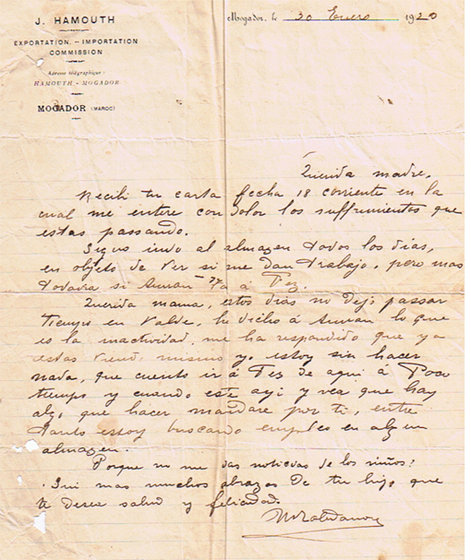 J. HAMOUTH
EXPORTATION. – IMPORTATION
COMMISSION
Adresse télégraphique:
HAMOUTH - MOGADOR
MOGADOR (MAROC)
Mogador, le 30 Enero 1920
Querida madre,
Recibi tu carta fecha 18 corriente en la
cual me entere con dolor los suffrimientos que
estas passando.
Sigue indo al almagen todos los dias,
en objeto de ver si me dan trabajo, pero mas
todavia si va á Fez.
Querida mama, estos dias no dejo passar
tiempo en valde, he dicho á lo que
es la inactividad, me ha respondido que ya
estas viend mismo yo estoy sin hacer
nada, que cuento ir á Fez de aqui á Poco
tiempo y cuando este ayi y vea que hay
algo que hacer mandare por ti, entre
tanto estoy buscando empleo en algun
almagen.
Porque no me das noticias de los niños?
Sin mas muchos abrazos de tu hijo que
te desea salud y felicidad.